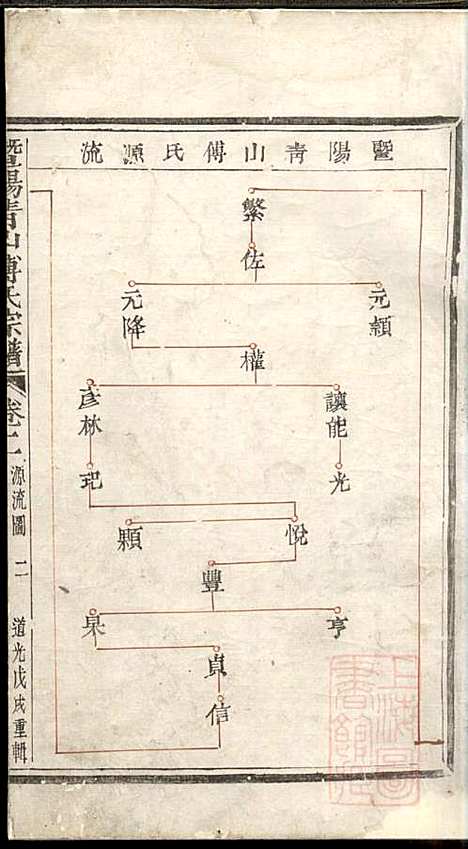 暨陽青山傅氏源流
繁
佐
元穎
元降
權
讓能
彥林
光
玘
悅
顆
豐
亨
杲
貞
信
暨陽青山傅氏宗譜
卷二
源流圖
二
道光戊戌重輯
上海圖書館藏